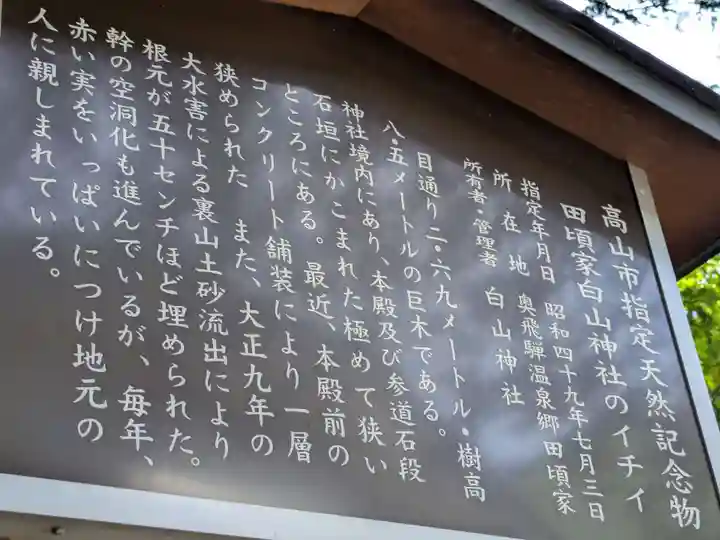 高山市指定天然記念物
田頃家白山神社のイチイ
指定年月日 昭和四十九年七月三日
所在地 奥飛騨温泉郷田頃家
所有者・管理者 白山神社
目通り二・六九メートル・樹高
八・五メートルの巨木である。
神社境内にあり、本殿及び参道石段
石垣にかこまれた極めて狭い
ところにある。最近、本殿前の
コンクリート舗装により一層
狭められた また、大正九年の
大水害による裏山土砂流出により
根元が五十センチほど埋められた。
幹の空洞化も進んでいるが、毎年、
赤い実をいっぱいにつけ地元の
人に親しまれている。